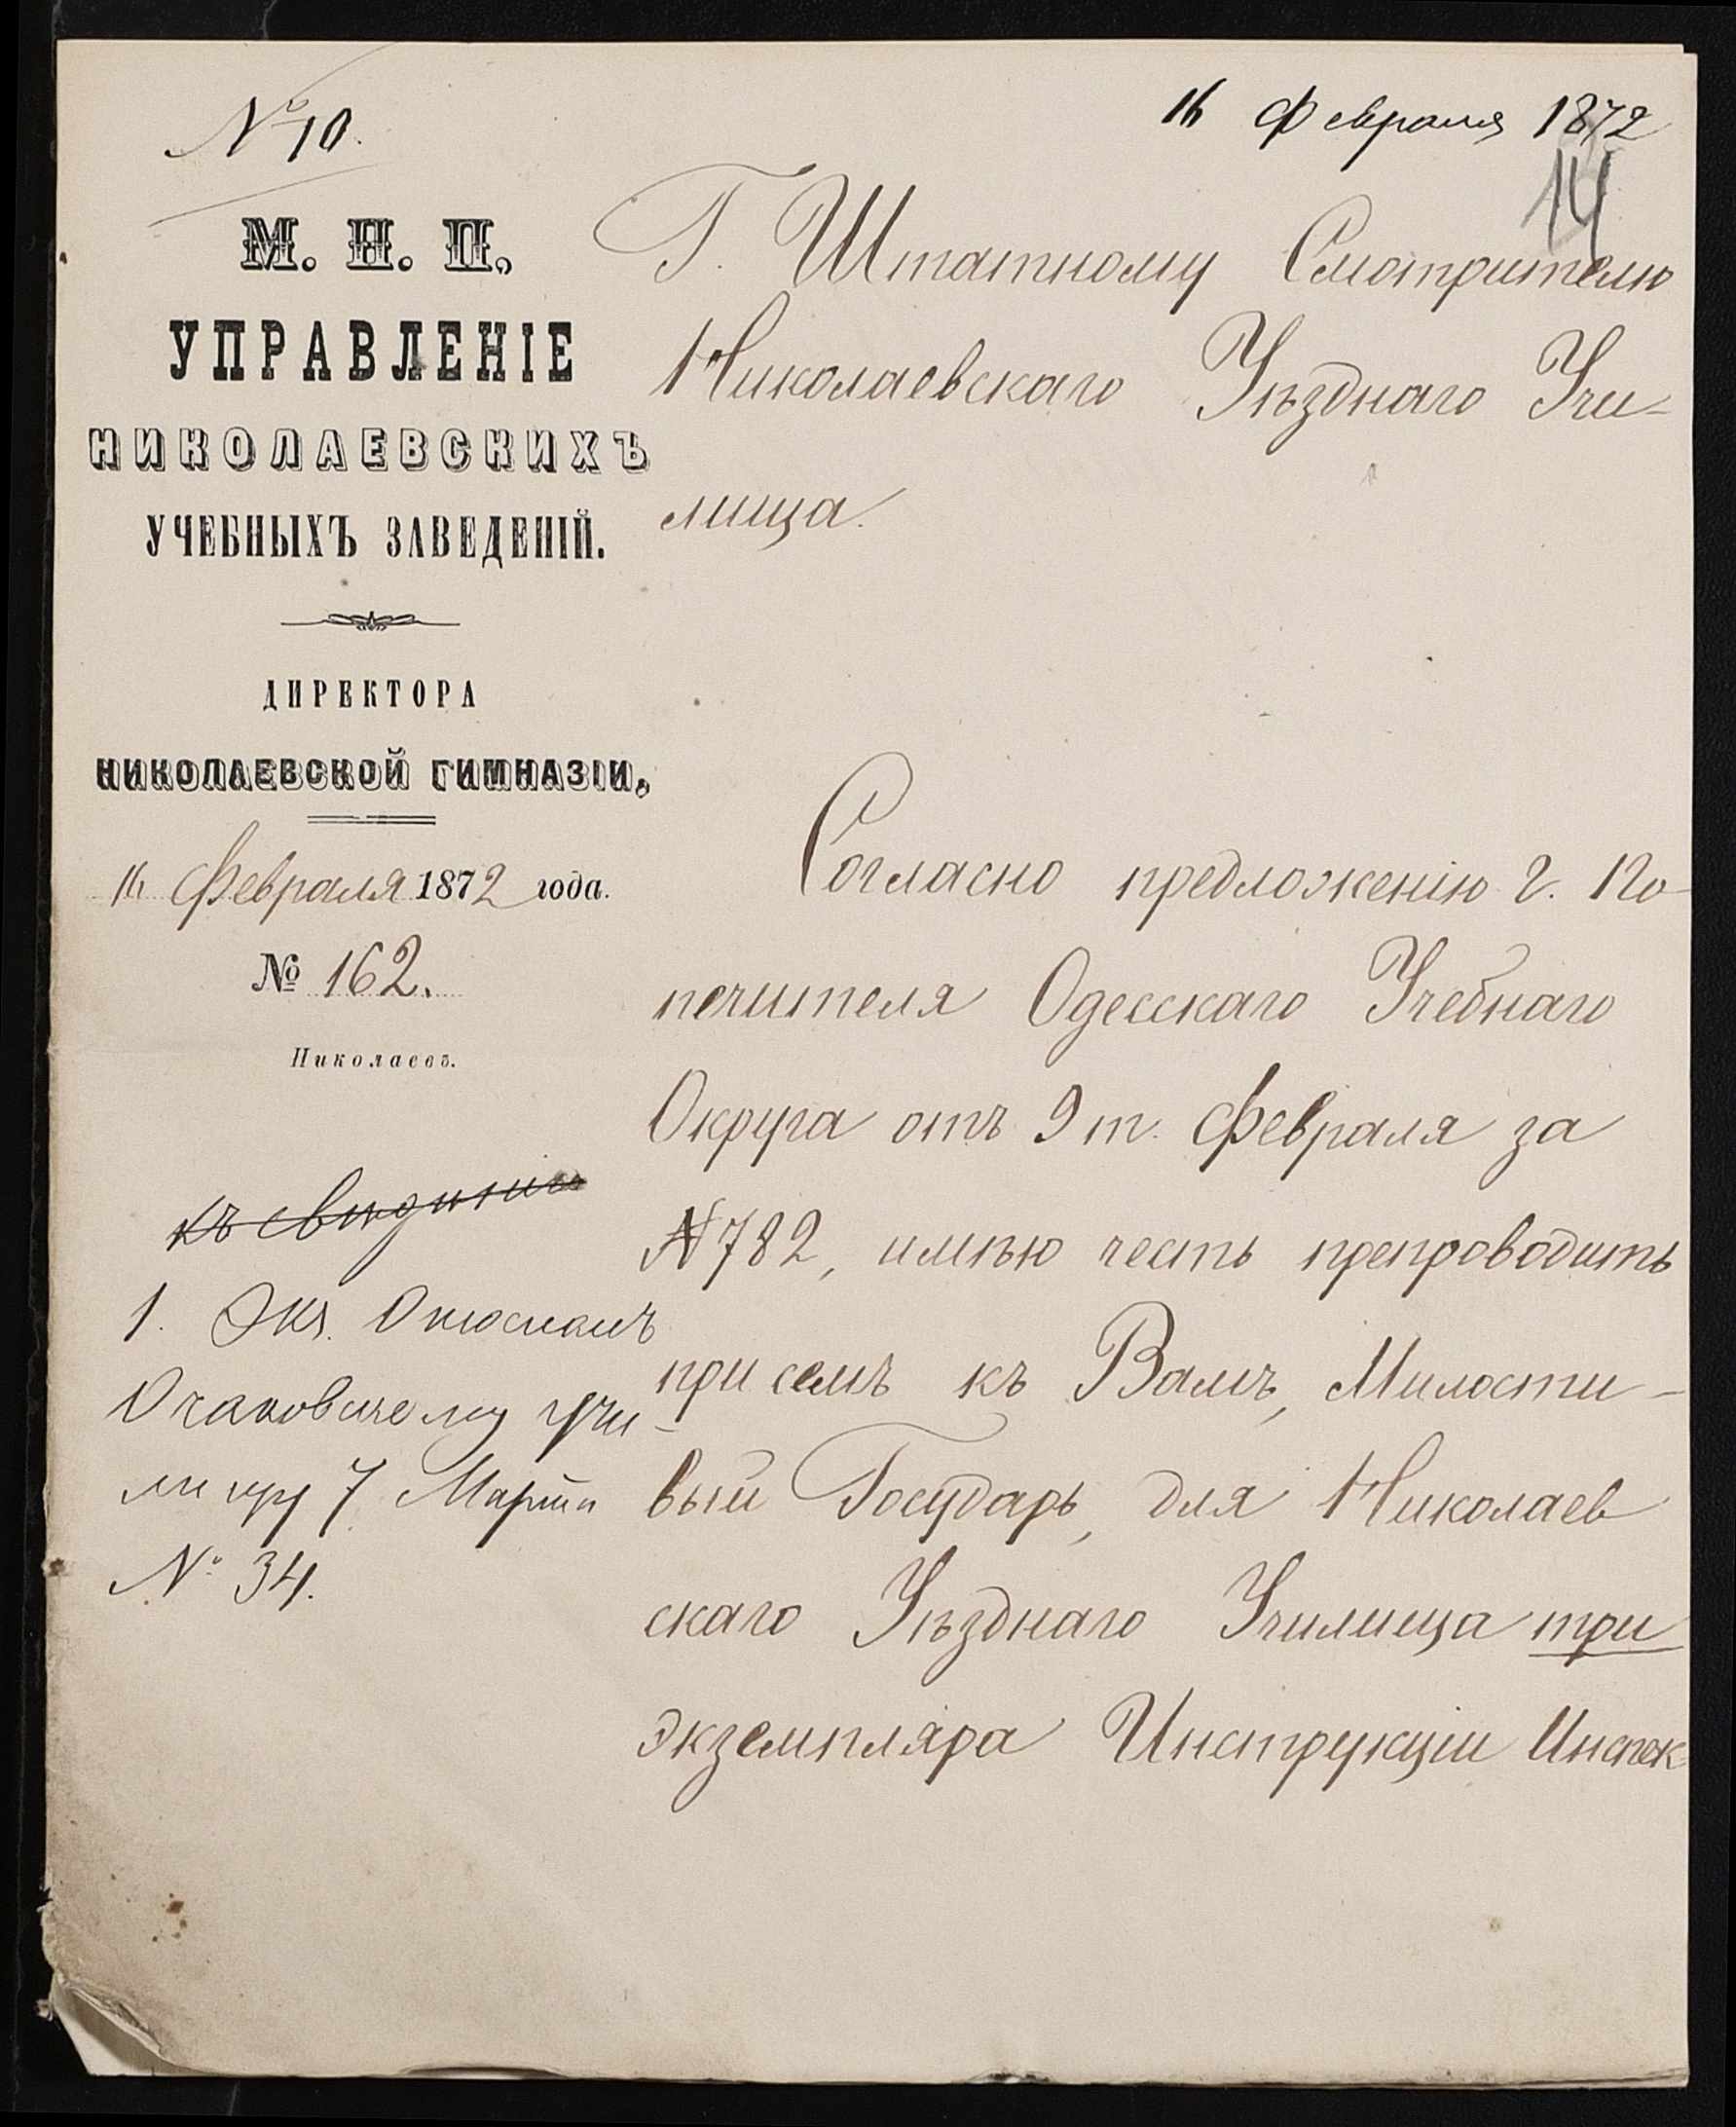 № 10.
16 Февраля 1872
14
М. Н. П.
УПРАВЛЕНІЕ
НИКОЛАЕВСКИХЪ
УЧЕБНЫХЪ ЗАВЕДЕНІЙ.
ДИРЕКТОРА
НИКОЛАЕВСКОЙ ГИМНАЗІИ,
16 Февраля 1872 года.
№ 162.
Николаевъ.
къ свидинию
1. Экз. Отосланъ
Очаковскому учи-
лищу 7 Марта
№ 34.
Г. Штатному Смотрителю
Николаевскаго Уѣзднаго Учи-
лища.
Согласно предложенію г. По-
печителя Одесскаго Учебнаго
Округа отъ 9 т. Февраля за
№ 782, имѣю честь препроводить
при семъ къ Вамъ, Милости-
вый Государь, для Николаев
скаго Уѣзднаго Училища три
экземпляра Инструкціи Инспек